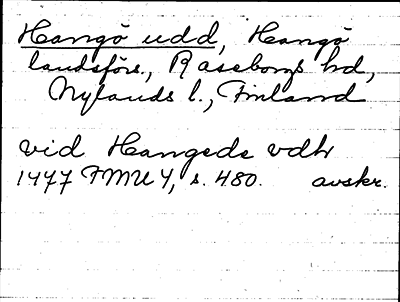 Hangö udd, Hangö
landsförs., Raseborgs hd,
Nylands l., Finland
vid Hangede vdh
1477 FMU 4, s. 480. avskr.